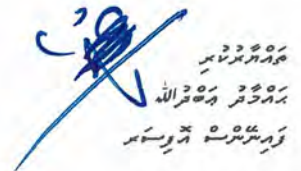 ތައްޔާރުކުރި
ޙައްމާދު ޢަބްދުﷲ
ފައިނޭންސް އޮފިސަރ